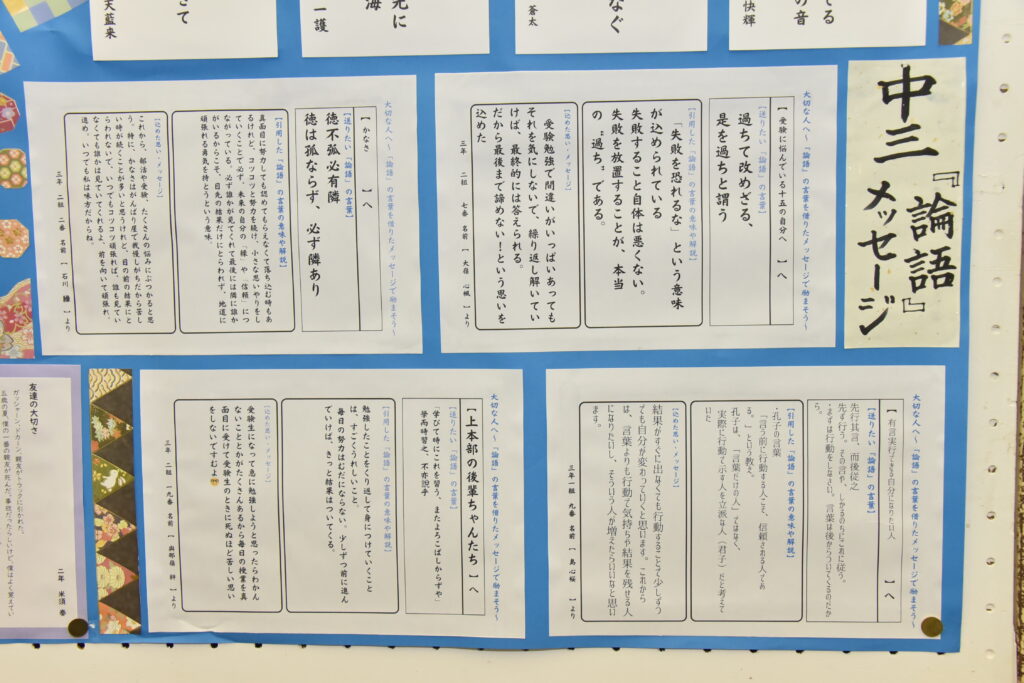 中三『論語』
メッセージ
てる
の音
快輝
なぐ
蒼太
先に
海
一護
さて
天藍来
大切な人へ~「論語」の言葉を借りたメッセージで励まそう~
【 受験に悩んでいる十五の自分へ 】へ
【送りたい「論語」の言葉】
過ちて改めざる、
是を過ちと謂う
【引用した「論語」の言葉の意味や解説】
「失敗を恐れるな」という意味
が込められている
失敗すること自体は悪くない。
失敗を放置することが、本当
の"過ち"である。
【込めた思い・メッセージ】
受験勉強で間違いがいっぱいあっても
それを気にしないで、繰り返し解いてい
けば、最終的には答えられる。
だから最後まで諦めない!という思いを
込めた
三年 二組 七番 名前【 大嶺 心楓 】より
大切な人へ~「論語」の言葉を借りたメッセージで励まそう~
【 かなさ 】へ
【送りたい「論語」の言葉】
徳不孤必有隣
徳は孤ならず、必ず隣あり
【引用した「論語」の言葉の意味や解説】
真面目に努力しても認めてもらえなくて落ち込む時もあ
るけれど、コツコツと努力を続け、小さな思いやりをし
ていくことで必ず、未来の自分の「縁」や「信頼」につ
ながっている。必ず誰かが見てくれて最後には隣に誰か
がいるからこそ、目先の結果だけにとらわれず、地道に
頑張れる勇気を持とうという意味。
【込めた思い・メッセージ】
これから、部活や受験、たくさんの悩みにぶつかると思
う。特に、かなさはがんばり屋で我慢しがちだから苦し
い時が続くことが多いと思うけれど、目の前の結果にと
らわれないで、いつでもコツコツ頑張れば、誰も見てい
なくても誰かは見ていてくれるよ、前を向いて頑張れ、
進め、いつでも私は味方だからね。
三年 二組 二番 名前【 石川 縁 】より
大切な人へ~「論語」の言葉を借りたメッセージで励まそう~
【 有言実行できる自分になりたい人 】へ
【送りたい「論語」の言葉】
先行其言、而後従之
先ず行う。その言や、しかるのちにこれに従う。
・まずは行動をしなさい。言葉は後からついてくるのだか
ら。
【引用した「論語」の言葉の意味や解説】
・孔子の言葉
「言う前に行動する人こそ、信頼される人であ
る。」という教え。
孔子は、「言葉だけの人」ではなく、
実際に行動で示す人を立派な人(君子)だと考えて
いた
【込めた思い・メッセージ】
結果がすぐに出なくても行動することで少しずつ
でも自分が変わっていくと思います。これから
は、言葉よりも行動で気持ちや結果を残せる人
になりたいし、そういう人が増えたらいいなと思い
ます。
三年一組 九番 名前【 島 心桜 】より
大切な人へ~「論語」の言葉を借りたメッセージで励まそう~
【上本部の後輩ちゃんたち 】へ
【送りたい「論語」の言葉】
「学びて時にこれを習う、またよろこばしからずや」
学而時習之、不亦説乎
【引用した「論語」の言葉の意味や解説】
勉強したことをくり返して身につけていくこと
は、すごくうれしいこと。
毎日の努力はむだにならない。少しずつ前に進ん
でいけば、きっと結果はついてくる。
【込めた思い・メッセージ】
受験生になって急に勉強しようと思ったらわかん
ないこととかがたくさんあるから毎日の授業を真
面目に受けて受験生のときに死ぬほど苦しい思い
をしないですむよ
三年 二組 一九番 名前【 與那嶺 絆 】より
友達の大切さ
ガッシャーン、ドカーン。親友がトラックに引かれた。
五歳の夏、僕の一番の親友が死んだ。事故だったらしいけど、僕はよく覚えてい
二年 米須 奏